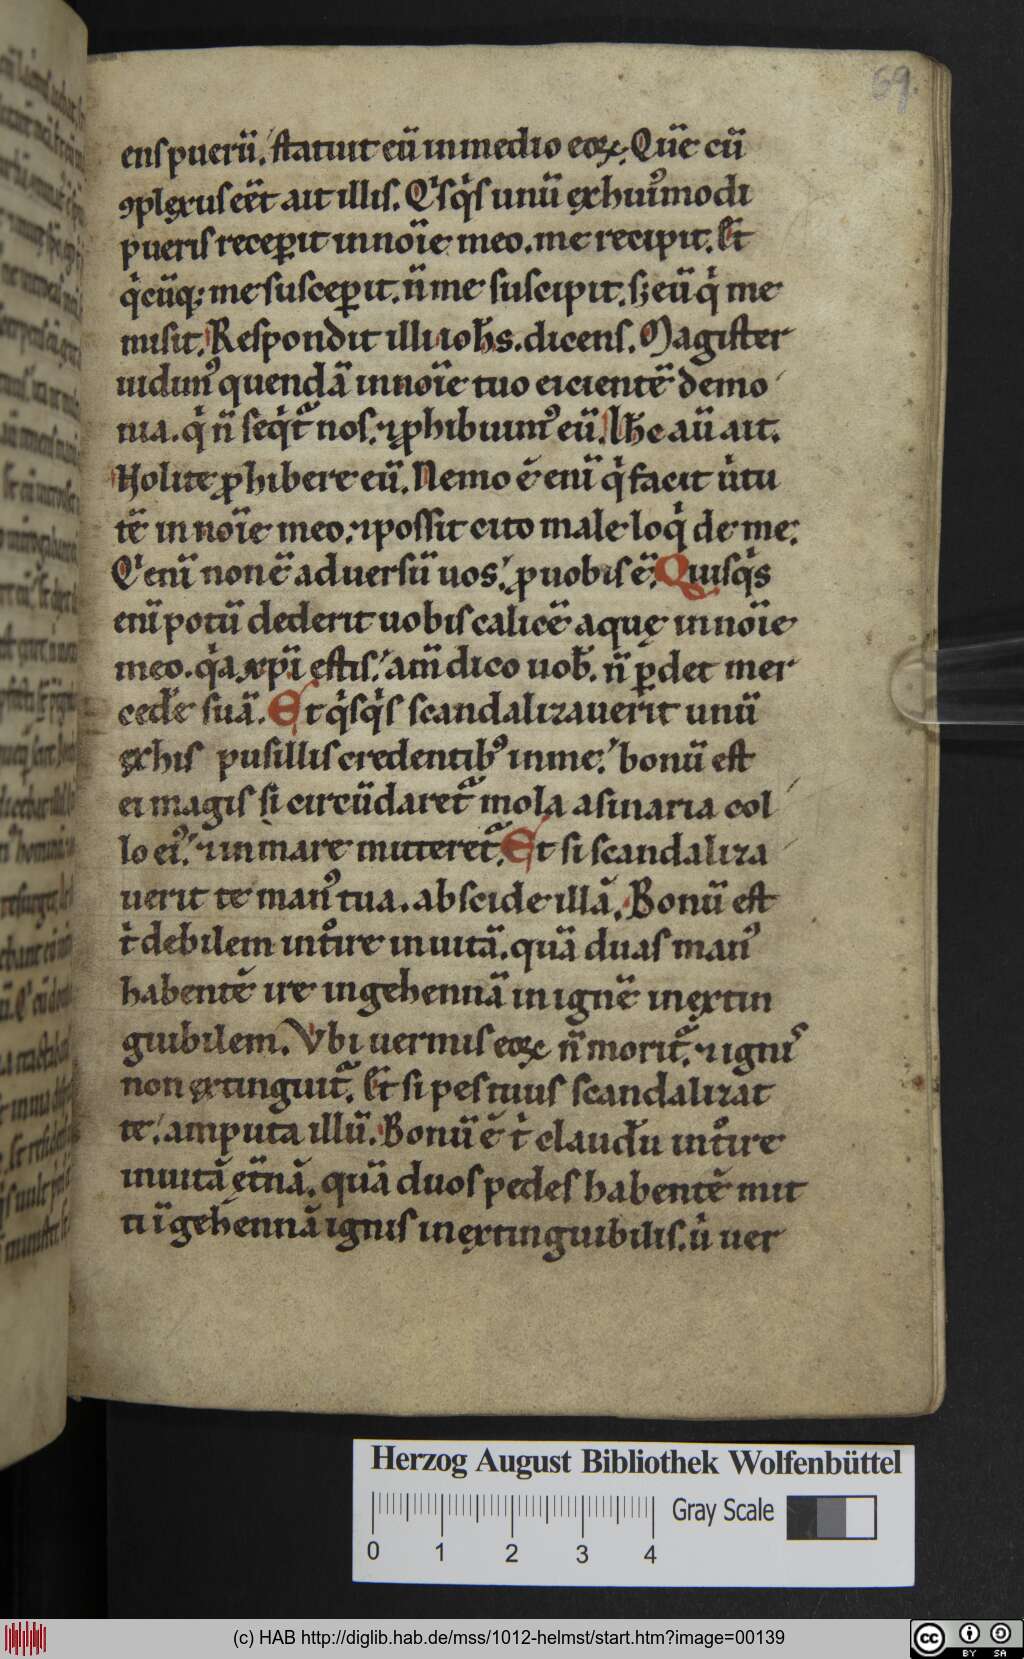 69.
ens puerū. statuit eū in medio eoꝝ. Quē cū
ꝯplexus eēt ait illis. Qͥsqͥs unū ex huiꝰmodi
pueris receꝑit in noīe meo. me recipit. Et
qͥcūq; me susceꝑit. n̄ me suscipit. sꝫ eū qͥ me
misit. Respondit illi ioħs. dicens. Magister
uidimꝰ quendā in noīe tuo eicientē demo
nia. qͥ n̄ seqͥt̄ nos. ⁊ ꝓhibuimꝰ eū. Iħc aū ait.
Nolite ꝓhibere eū. Nemo ē enī qͥ facit uͥtu
tē in noīe meo. ⁊ possit cito male loqͥ de me;
Qͥ enī non ē aduersū uos. ꝓ uobis ē. Quisqͥs
enī potū dederit uobis calicē aquę in noīe
meo. qͥa xp̄i estis. am̄ dico uob̄. n̄ ꝑdet mer
cedē suā. Et qͥsqͥs scandalizauerit unū
ex his pusillis credentibꝰ in me. bonū est
ei magis si circūdaret̄ mola asinaria col
lo eiꝰ. ⁊ in mare mitteret̄. Et si scandaliza
uerit te manꝰ tua. abscide illā. Bonū est
tͥ debilem intͦire in uitā. quā duas manꝰ
habentē ire in gehennā in ignē inextin
guibilem. Vbi uermis eoꝝ n̄ morit̄. ⁊ ignis
non extinguit̄. Et si pes tuus scandalizat
te. amputa illū. Bonū ē tͥ claudū intͦire
in uitā ęt̄nā. quā duos pedes habentē mit
ti ī gehennā ignis inextinguibilis. uͥ uer
Herzog August Bibliothek Wolfenbüttel
Gray Scale
0 1 2 3 4
(c) HAB http://diglib.hab.de/mss/1012-helmst/start.htm?image=00139
cc BY SA